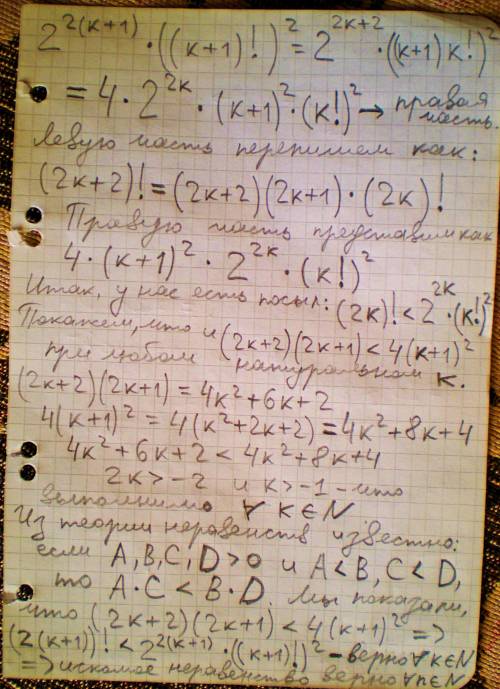 2^{2(k+1)} · ((k+1)!)^2 = 2^{2k+2} · ((k+1)k!)^2
= 4 · 2^{2k} · (k+1)^2 · (k!)^2 → правая часть.
Левую часть перепишем как:
(2k+2)! = (2k+2)(2k+1) · (2k)!
Правую часть представим как
4 · (k+1)^2 · 2^{2k} · (k!)^2
Итак, у нас есть посыл: (2k)! < 2^{2k} · (k!)^2
Покажем, что и (2k+2)(2k+1) < 4(k+1)^2
при любом натуральном k.
(2k+2)(2k+1) = 4k^2+6k+2
4(k+1)^2 = 4(k^2+2k+2) = 4k^2+8k+4
4k^2+6k+2 < 4k^2+8k+4
2k > -2 и k > -1 - что
выполнимо ∀ k ∈ N
Из теории неравенств известно:
если A, B, C, D > 0 и A < B, C < D,
то A · C < B · D. Мы показали,
что (2k+2)(2k+1) < 4(k+1)^2 =>
(2(k+1))! < 2^{2(k+1)} · ((k+1)!)^2 - верно ∀ k ∈ N
=> искомое неравенство верно ∀ n ∈ N